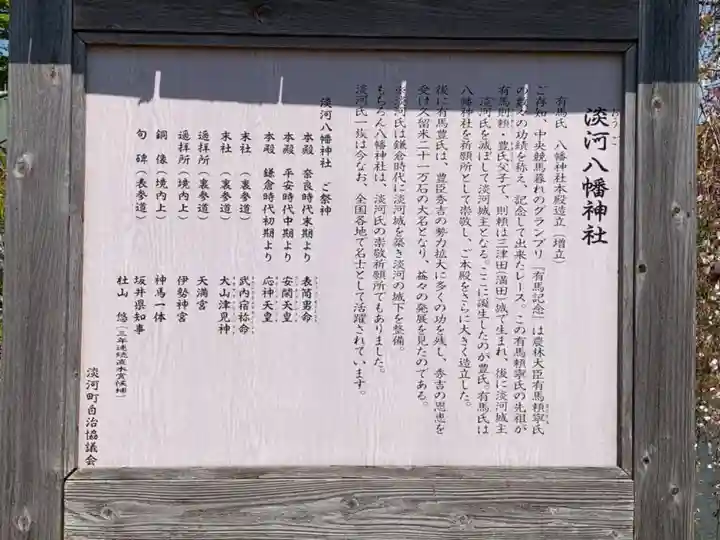 淡河八幡神社
おうご
有馬氏 八幡神社本殿造立(増立)
ご存知、中央競馬暮れのグランプリ(有馬記念)は農林大臣有馬頼寧氏
の数々の功績を称え、記念して出来たレース。この有馬頼寧氏の先祖が
有馬則頼・豊氏父子で、則頼は三津田(満田)城で生まれ、後に淡河城主
淡河氏を滅ぼして淡河城主となる。ここに誕生したのが豊氏。有馬氏は
八幡神社を祈願所として崇敬し、ご本殿をさらに大きく造立した。
後に有馬豊氏は、豊臣秀吉の勢力拡大に多くの功を残し、秀吉の恩恵を
受け久留米二十一万石の大名となり、益々の発展を見たのである。
淡河氏は鎌倉時代に淡河城を築き淡河の城下を整備。
もちろん八幡神社は、淡河氏の崇敬祈願所でもありました。
淡河氏一族は今なお、全国各地で名士として活躍されています。
淡河八幡神社 ご祭神
本殿 奈良時代末期より 表筒男命
本殿 平安時代中期より 安閑天皇
本殿 鎌倉時代初期より 応神天皇
末社 (裏参道) 武内宿祢命
末社 (裏参道) 大山津見神
遥拝所(裏参道) 天満宮
遥拝所(境内上) 伊勢神宮
銅像(境内上) 神馬一体
句碑(表参道) 坂井県知事
杜山 悠(三年連続直木賞候補)
淡河町自治協議会